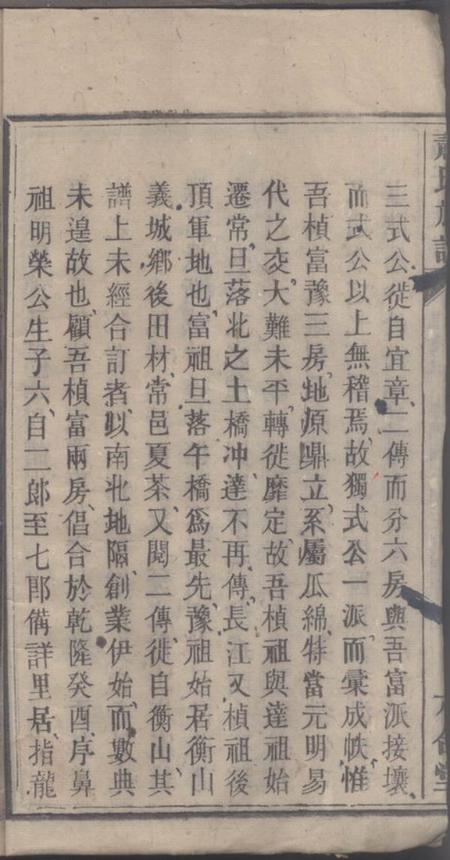 三式公徙自宜章二傳而分六房與吾富派接壤
而式公以上無稽焉故獨式公一派而彙成帙惟
吾楨富豫三房地原鼎立系屬瓜綿特當元明易
代之交大難未平轉徙靡定故吾楨祖與達祖始
遷常旦落北之土橋冲達不再傳長江又楨祖後
頂軍地也富祖旦落午橋爲最先豫祖始居衡山
義城鄉後田材常邑夏茶又聞二傳徙自衡山其
譜上未經合訂者以南北地隔創業伊始而數典
未遑故也顧吾楨富兩房倡合於乾隆癸酉序鼻
祖明榮公生子六自二郎至七郎備詳里居指龍